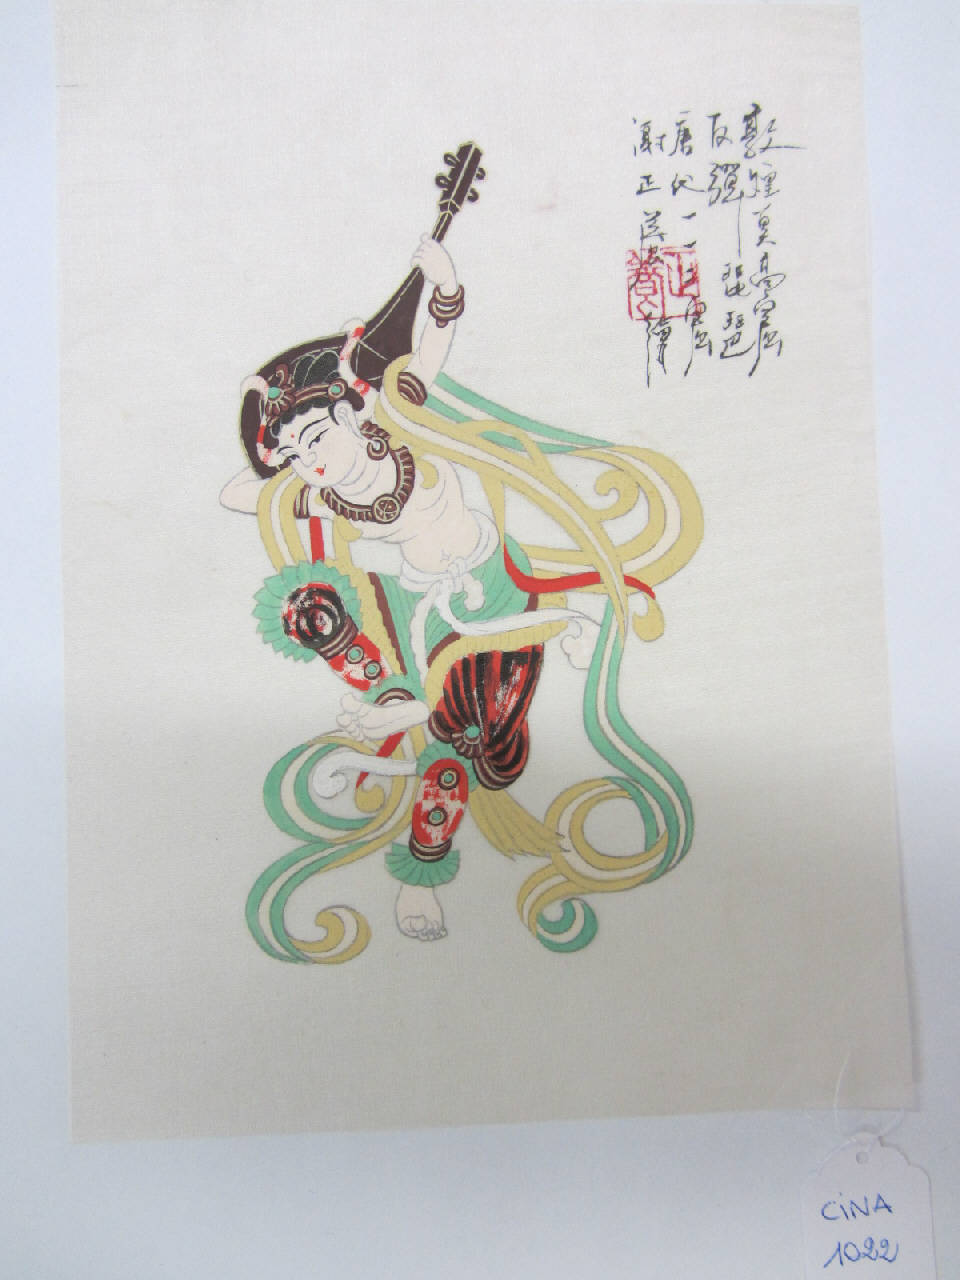 敦煌莫高窟
反彈琵琶
唐代一一二窟
謝正
CiNA
1022